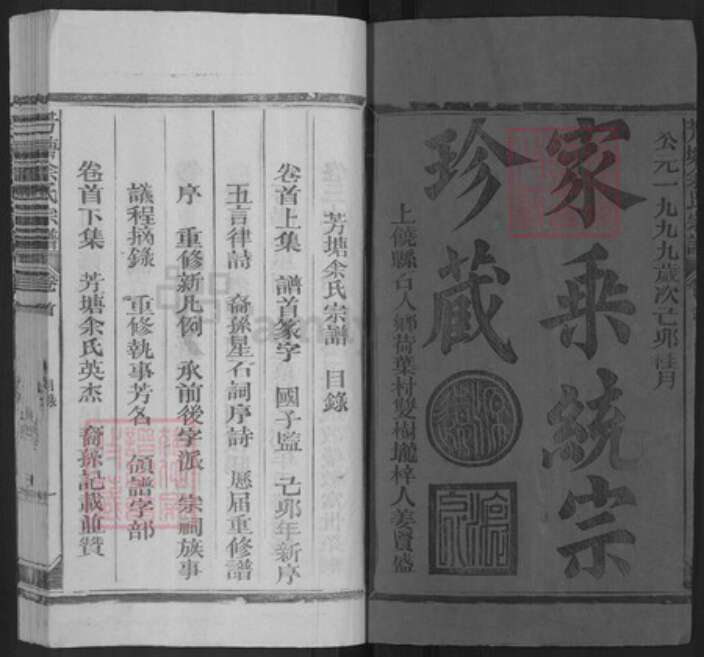 公元一九九九歲次己卯桂月
家乘統宗
珍藏
上饒縣石人鄉荷葉村雙榻壠梓人姜賢盛
芳塘余氏宗譜 目錄
卷首上集 譜首篆字 國子監 己卯年新序
五言律詩 裔孫星石詞序詩 歷屆重修譜
序 重修新凡例 承前後字派 宗祠族事
議程摘錄 重修執事芳名 領譜字部
卷首下集 芳塘余氏英杰 裔孫記載並贊
芳塘余氏宗譜 卷首
目錄